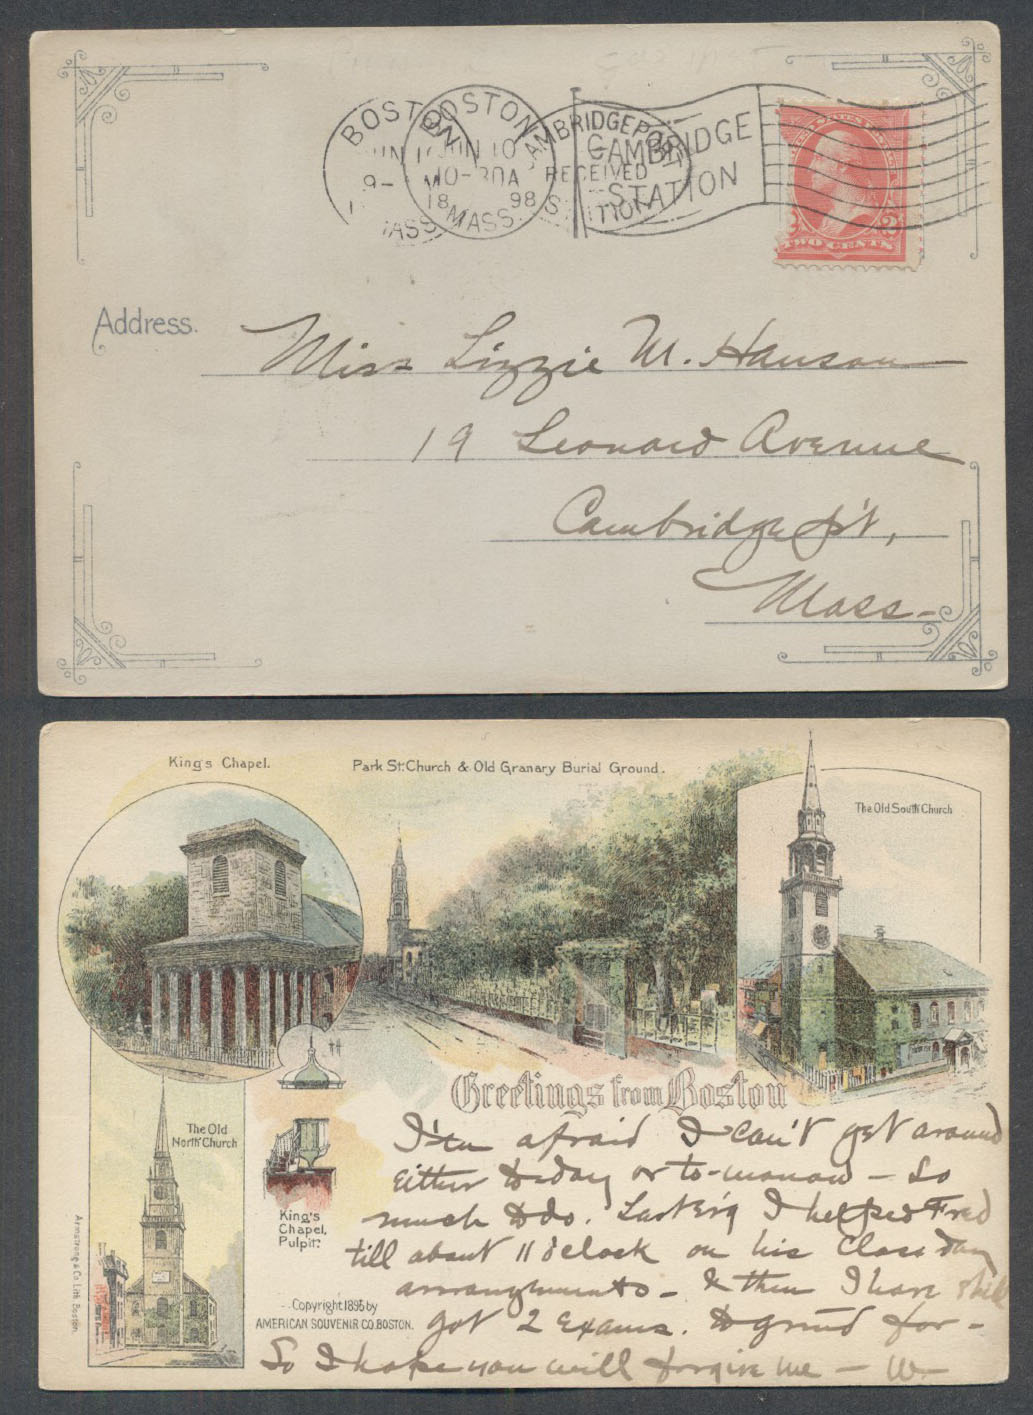 BOSTON
BOSTON
JUN 10
10-30A
9-
18 98
MASS.
MASS.
CAMBRIDGEPORT
RECEIVED
STATION
CAMBRIDGE
STATION
2 2
TWO CENTS
Address.
Miss Lizzie M. Hanson
19 Leonard Avenue
Cambridgep't,
Mass-
King's Chapel.
Park St. Church & Old Granary Burial Ground.
The Old South Church
Greetings from Boston
The Old
North Church
King's
Chapel,
Pulpit.
Armstrong & Co. Lith. Boston.
Copyright 1895 by
AMERICAN SOUVENIR CO. BOSTON.
I'm afraid I can't get around
either today or to-morrow - So
much to do. Last ev'g I helped Fred
till about 11 o'clock on his Class day
arrangements - & then I have still
got 2 Exams. to grind for -
So I hope you will forgive me - W-